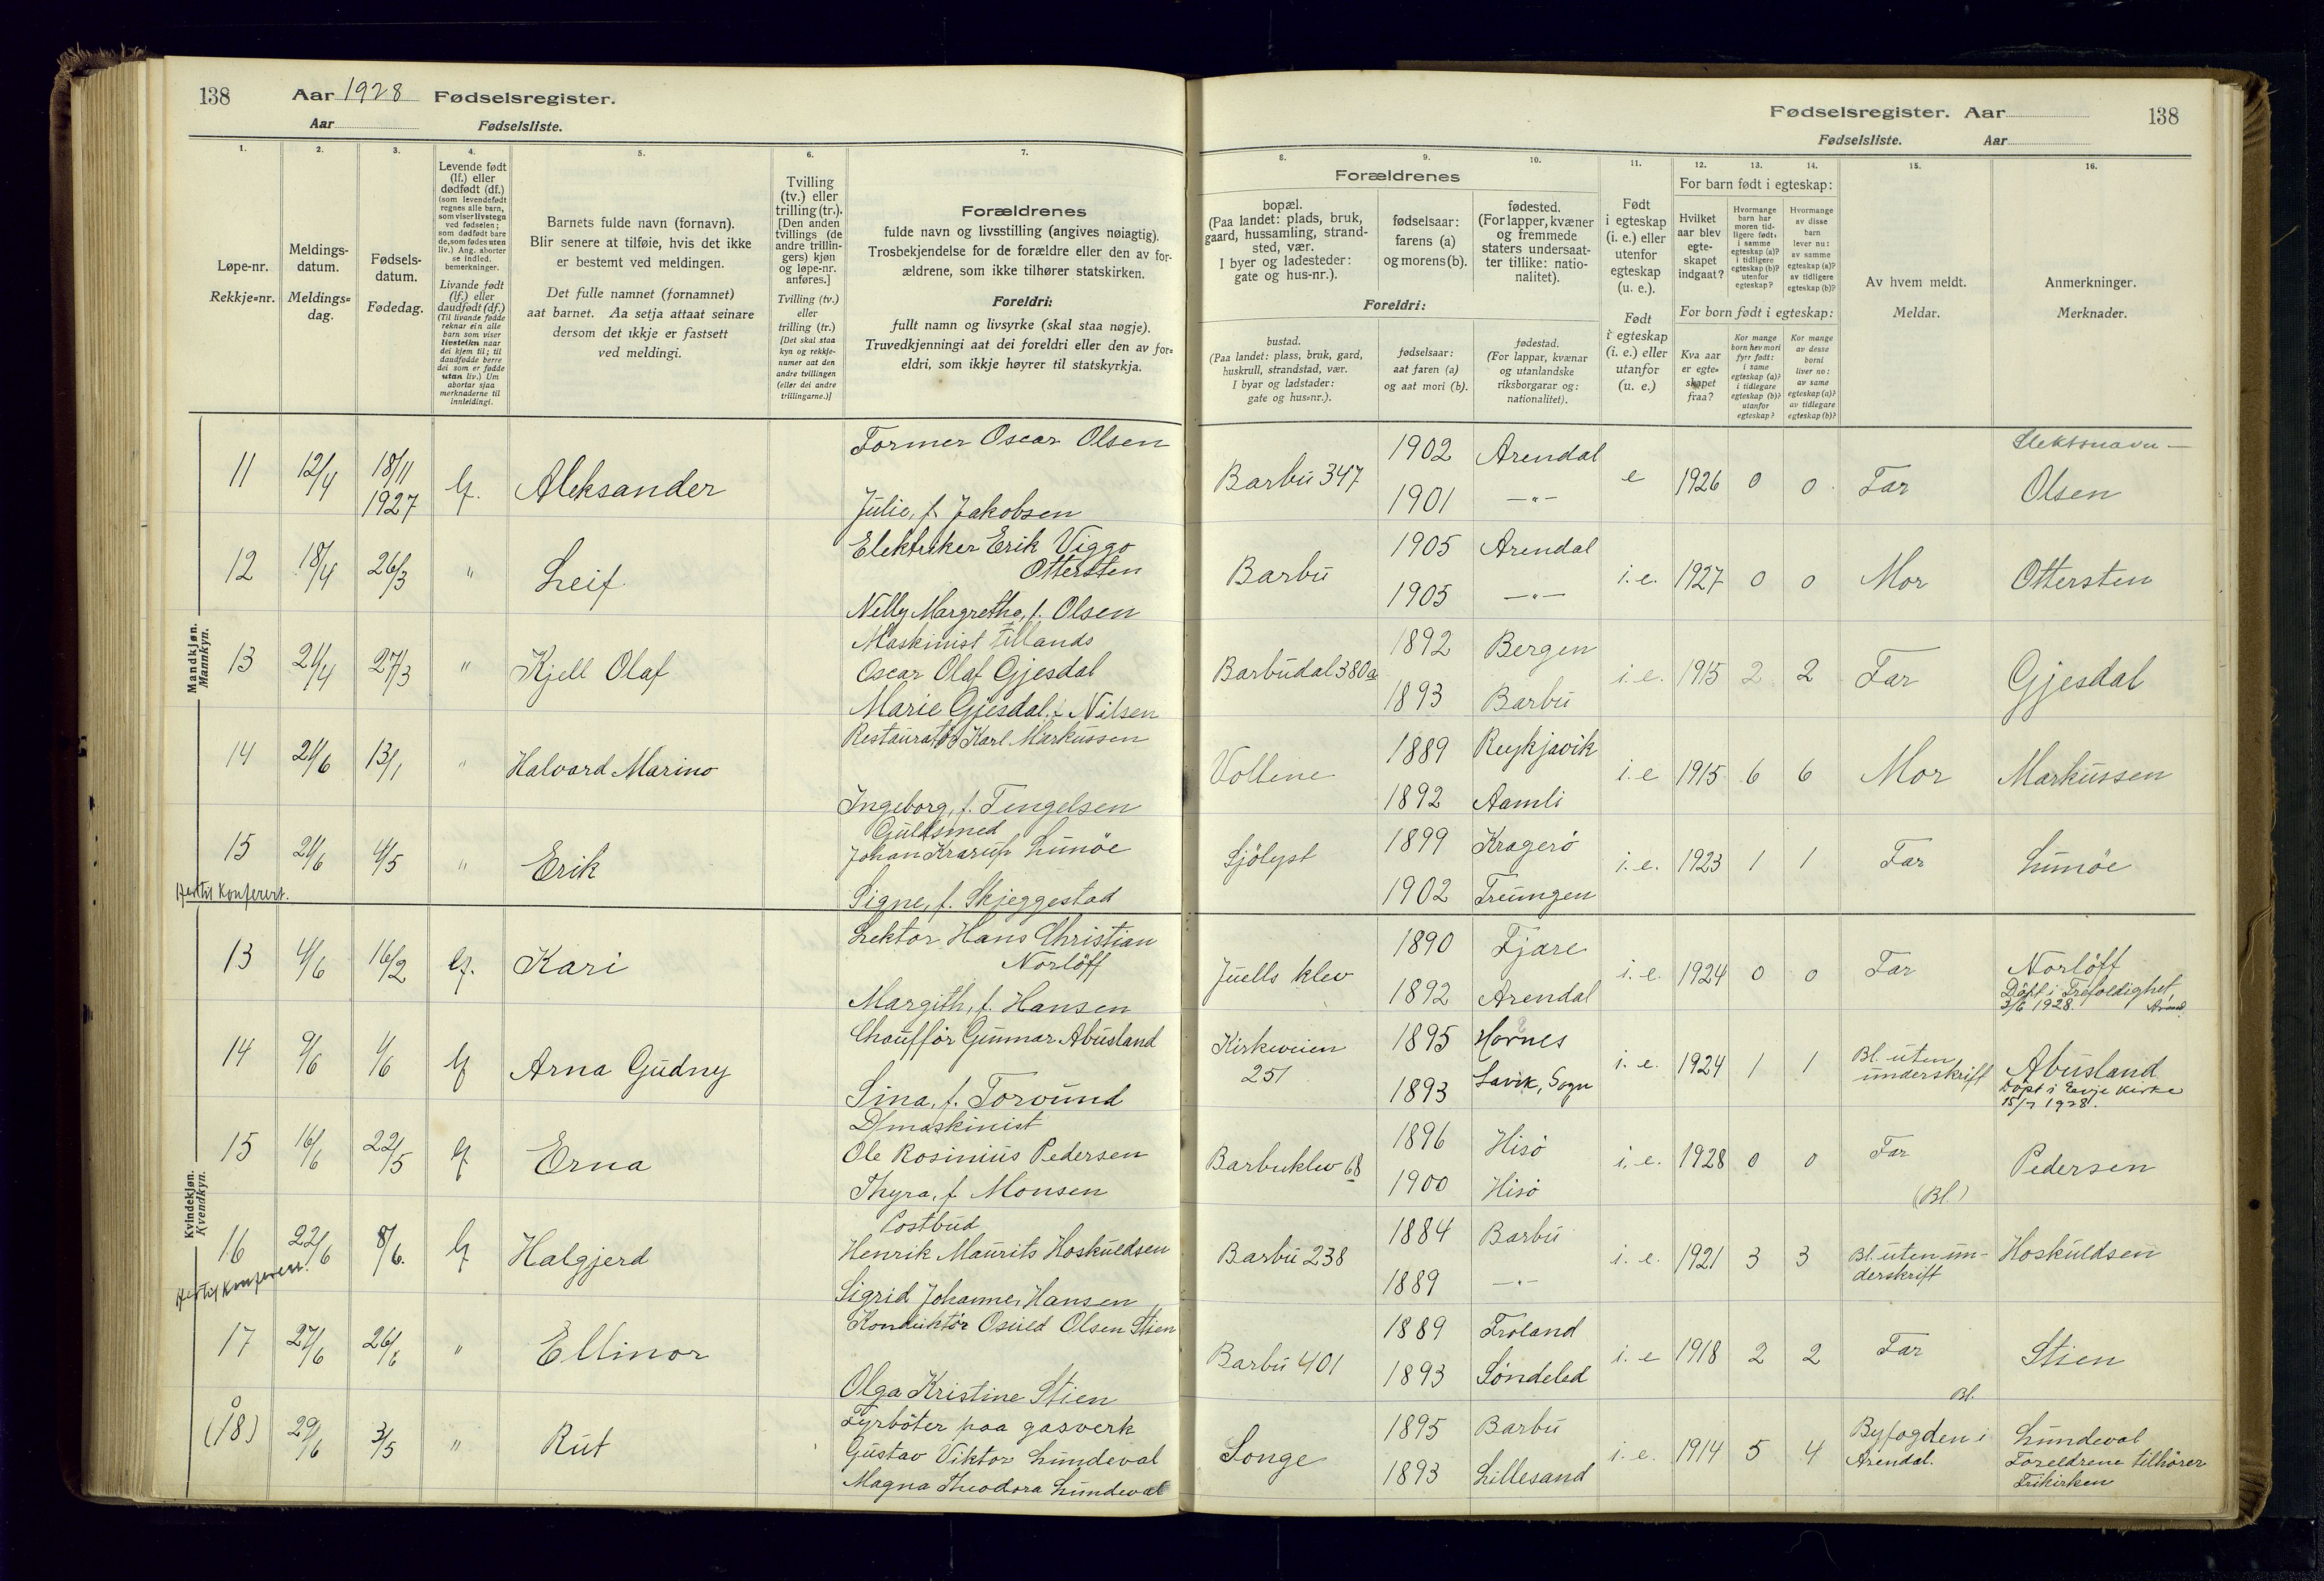 138 Aar 1928 Fødselsregister.
Aar Fødselsliste.
Fødselsregister. Aar 138
Fødselsliste. Aar
1. 2. 3. 4. 5. 6. 7. 8. 9. 10. 11. 12. 13. 14. 15. 16.
Løpe-nr.
Rekkje=nr.
Meldings-
datum.
Meldings=
dag.
Fødsels-
datum.
Fødedag.
Levende født
(lf.) eller
dødfødt (df.)
(som levendefødt
regnes alle barn,
som viser livstegn
ved fødselen;
som dødfødt bare
de, som fødes uten
liv.) Ang. aborter
se indled.
bemerkninger.
Livande født
(lf.) eller
daudfødt (df.)
(Til livande fødde
reknar ein alle
barn som viser
livsteikn naar
dei kjem til; til
daudfødde berre
dei som er fødde
utan liv.) Um
abortar sjaa
merknaderne til
innleidingi.
Barnets fulde navn (fornavn).
Blir senere at tilføie, hvis det ikke
er bestemt ved meldingen.
Det fulle namnet (fornamnet)
aat barnet. Aa setja attaat seinare
dersom det ikkje er fastsett
ved meldingi.
Tvilling
(tv.) eller
trilling (tr.).
[Den anden
tvillings (de
andre trillin-
gers) kjøn
og løpe-nr.
anføres.]
Tvilling (tv.)
eller
trilling (tr.)
[Det skal staa
kyn og rekkje-
numer aat den
andre tvillingen
(eller dei andre
trillingarne.)]
Forældrenes
fulde navn og livsstilling (angives nøiagtig).
Trosbekjendelse for de forældre eller den av for-
ældrene, som ikke tilhører statskirken.
Foreldri:
fullt namn og livsyrke (skal staa nøgje).
Truvedkjenningi aat dei foreldri eller den av for=
eldri, som ikkje høyrer til statskyrkja.
Forældrenes
bopæl.
(Paa landet: plads, bruk,
gaard, hussamling, strand-
sted, vær.
I byer og ladesteder:
gate og hus-nr.).
fødselsaar:
farens (a)
og morens (b).
fødested.
(For lapper, kvæner
og fremmede
staters undersaat-
ter tillike: natio-
nalitet).
Foreldri:
bustad.
(Paa landet: plass, bruk, gard,
huskrull, strandstad, vær.
I byar og ladstader:
gate og hus=nr.).
fødselsaar:
aat faren (a)
og aat mori (b).
fødestad.
(For lappar, kvænar
og utanlandske
riksborgarar og:
nationalitet).
Født
i egteskap
(i. e.) eller
utenfor
egteskap
(u. e.).
Født
i egteskap
(i. e.) eller
utanfor
(u. e.)
For barn født i egteskap:
Hvilket
aar blev
egte-
skapet
indgaat?
Hvormange
barn har
moren tid-
ligere født:
i samme
egteskap (a)?
i tidligere
egteskap (b)?
utenfor
egteskap?
Hvormange
av disse
barn
lever nu:
av samme
egteskap (a)?
av tidligere
egteskap (b)?
For born født i egteskap:
Kva aar
er egte=
skapet
fraa?
Kor mange
born hev mori
fyrr født:
i same
egteskap (a)?
i tidlegare
egteskap (b)?
utanfor
egteskap?
Kor mange
av desse
borni
liver no:
av same
egteskap (a)?
av tidlegare
egteskap (b)?
Av hvem meldt.
Meldar.
Anmerkninger.
Merknader.
Mandkjøn.
Mannkyn.
Former Oscar Olsen 1902 Arendal Slektsnavn –
11 12/4 18/11 1927 lf. Aleksander Barbu 347 e 1926 0 0 Far Olsen
Julie, f. Jakobsen 1901 —"—
Elektriker Erik Viggo 1905 Arendal
Ottersten
12 18/4 26/3 " Leif Barbu i. e. 1927 0 0 Mor Ottersten
Nelly Margrethe, f. Olsen 1905 —"—
Maskinist tillands 1892 Bergen
13 21/4 27/3 " Kjell Olaf Oscar Olaf Gjesdal Barbudal 380a i. e. 1915 2 2 Far Gjesdal
Marie Gjesdal, f. Nilsen 1893 Barbu
Restauratör Karl Markussen 1889 Reykjavik
14 21/6 13/1 " Halvard Marino Vollene i. e 1915 6 6 Mor Markussen
Ingeborg, f. Tengelsen 1892 Aamli
Guldsmed
15 21/6 4/5 " Erik Johan Krarup Lunöe Sjölyst 1899 Kragerö i. e. 1923 1 1 Far Lunöe
Hertil konferert. Signe, f. Skjeggestad 1902 Treungen
Kvindekjøn.
Kvendkyn.
Lektor Hans Christian 1890 Fjære
Norlöff
13 4/6 16/2 lf. Kari Juells klev i. e. 1924 0 0 Far Norlöff
Margith, f. Hansen 1892 Arendal Döpt i Trefoldighet
3/6 1928. Arend.
Chaufför Gunnar Abusland Kirkeveien 1895 Hornes
14 9/6 1/6 lf Arna Gudny 251 i. e. 1924 1 1 Bl. uten Abusland
underskrift
Lina, f. Torvund 1893 Lavik, Sogn Döpt i Evje kirke
15/7 1928.
D/maskinist 1896 Hisö
15 16/6 22/5 lf Erna Ole Rosinius Pedersen Barbuklev 68 i. e. 1928 0 0 Far Pedersen
Thyra, f. Monsen 1900 Hisö (Bl.)
Postbud 1884 Barbu
16 22/6 8/6. lf Halgjerd Henrik Maurits Hoskuldsen Barbu 238 i. e. 1921 3 3 Bl. uten un- Hoskuldsen
derskrift
Hertil konferert. Sigrid Johanne, Hansen 1889 —"—
Konduktör Osuld Olsen Stien 1889 Froland
17 27/6 26/6 " Ellinor Barbu 401 i. e 1918 2 2 Far Stien
Olga Kristine Stien 1893 Söndeled Bl.
Fyrböter paa gasverk 1895 Barbu
(18) 29/6 3/5 " Rut Gustav Viktor Lundeval Songe i. e. 1914 5 4 Byfogden i Lundeval
Arendal. Foreldrene tilhörer
Magna Theodora Lundeval 1893 Lillesand Frikirken